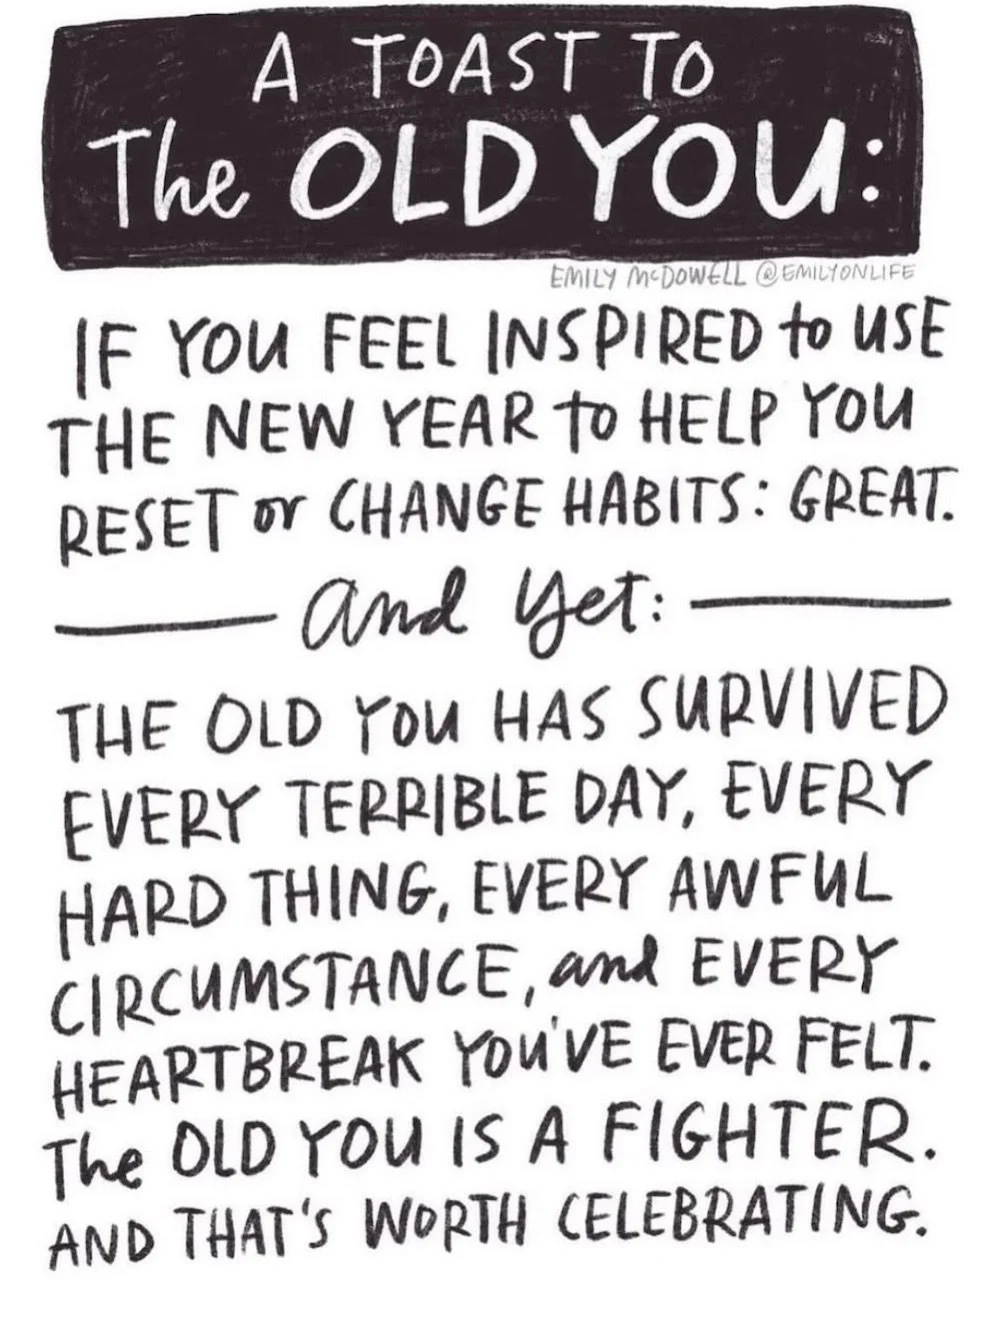 A TOAST TO
The OLD YOU:
EMILY McDOWELL @EMILYONLIFE
IF YOU FEEL INSPIRED to USE
THE NEW YEAR to HELP YOU
RESET or CHANGE HABITS: GREAT.
and yet:
THE OLD YOU HAS SURVIVED
EVERY TERRIBLE DAY, EVERY
HARD THING, EVERY AWFUL
CIRCUMSTANCE, and EVERY
HEARTBREAK YOU'VE EVER FELT.
The OLD YOU IS A FIGHTER.
AND THAT'S WORTH CELEBRATING.